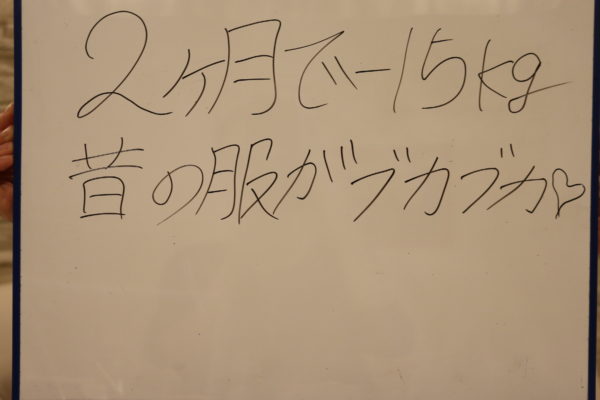 2ヶ月で-15kg
昔の服がブカブカ♡